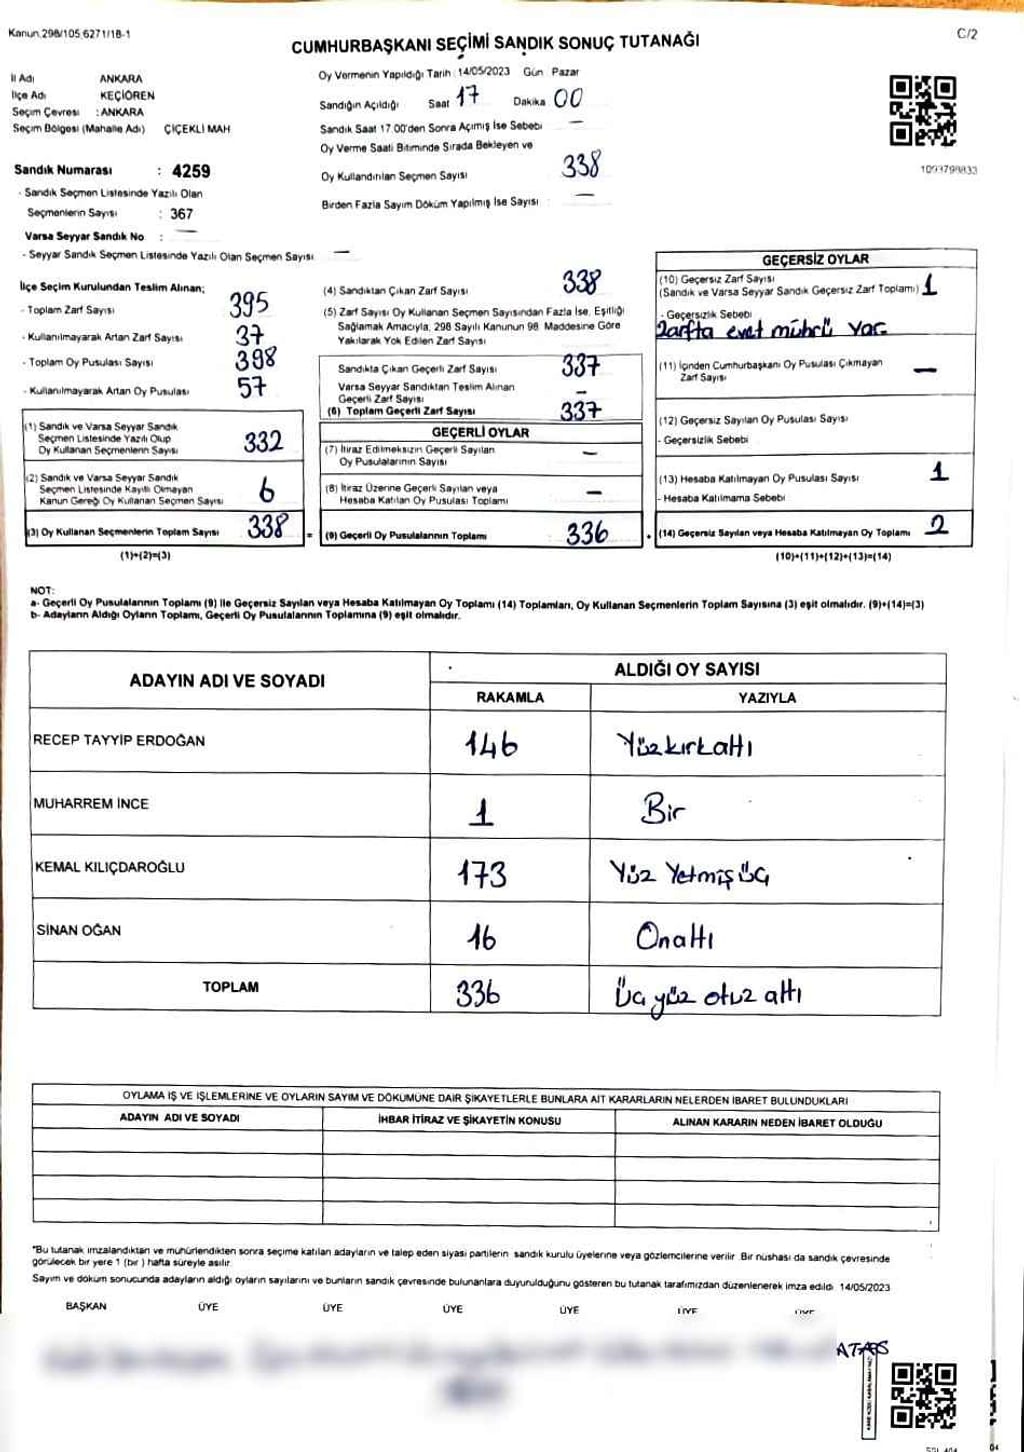 Kanun.298/105,6271/18-1
C/2
CUMHURBAŞKANI SEÇİMİ SANDIK SONUÇ TUTANAĞI
İl Adı ANKARA
İlçe Adı KEÇİÖREN
Seçim Çevresi : ANKARA
Seçim Bölgesi (Mahalle Adı) ÇİÇEKLİ MAH
Oy Vermenin Yapıldığı Tarih : 14/05/2023 Gün Pazar
Sandığın Açıldığı Saat 17 Dakika 00
Sandık Saat 17.00'den Sonra Açımış İse Sebebi —
Oy Verme Saati Bitiminde Sırada Bekleyen ve
Oy Kullandırılan Seçmen Sayısı 338
Birden Fazla Sayım Döküm Yapılmış İse Sayısı : —
1093798833
Sandık Numarası : 4259
- Sandık Seçmen Listesinde Yazılı Olan
Seçmenlerin Sayısı : 367
Varsa Seyyar Sandık No : —
- Seyyar Sandık Seçmen Listesinde Yazılı Olan Seçmen Sayısı —
İlçe Seçim Kurulundan Teslim Alınan;
- Toplam Zarf Sayısı 395
- Kullanılmayarak Artan Zarf Sayısı 37
- Toplam Oy Pusulası Sayısı 398
- Kullanılmayarak Artan Oy Pusulası 57
(1) Sandık ve Varsa Seyyar Sandık
Seçmen Listesinde Yazılı Olup
Oy Kullanan Seçmenlerin Sayısı 332
(2) Sandık ve Varsa Seyyar Sandık
Seçmen Listesinde Kayıtlı Olmayan
Kanun Gereği Oy Kullanan Seçmen Sayısı 6
(3) Oy Kullanan Seçmenlerin Toplam Sayısı 338
(1)+(2)=(3)
(4) Sandıktan Çıkan Zarf Sayısı 338
(5) Zarf Sayısı Oy Kullanan Seçmen Sayısından Fazla İse, Eşitliği
Sağlamak Amacıyla, 298 Sayılı Kanunun 98. Maddesine Göre
Yakılarak Yok Edilen Zarf Sayısı
Sandıkta Çıkan Geçerli Zarf Sayısı 337
Varsa Seyyar Sandıktan Teslim Alınan
Geçerli Zarf Sayısı —
(6) Toplam Geçerli Zarf Sayısı 337
GEÇERLİ OYLAR
(7) İtiraz Edilmeksizin Geçerli Sayılan
Oy Pusulalarının Sayısı —
(8) İtiraz Üzerine Geçerli Sayılan veya
Hesaba Katılan Oy Pusulası Toplamı —
= (9) Geçerli Oy Pusulalarının Toplamı : 336
GEÇERSİZ OYLAR
(10) Geçersiz Zarf Sayısı
(Sandık ve Varsa Seyyar Sandık Geçersiz Zarf Toplamı) 1
- Geçersizlik Sebebi
Zarfta evet mührü var
(11) İçinden Cumhurbaşkanı Oy Pusulası Çıkmayan
Zarf Sayısı —
(12) Geçersiz Sayılan Oy Pusulası Sayısı
- Geçersizlik Sebebi
(13) Hesaba Katılmayan Oy Pusulası Sayısı 1
- Hesaba Katılmama Sebebi
+ (14) Geçersiz Sayılan veya Hesaba Katılmayan Oy Toplamı 2
(10)+(11)+(12)+(13)=(14)
NOT:
a- Geçerli Oy Pusulalarının Toplamı (9) ile Geçersiz Sayılan veya Hesaba Katılmayan Oy Toplamı (14) Toplamları, Oy Kullanan Seçmenlerin Toplam Sayısına (3) eşit olmalıdır. (9)+(14)=(3)
b- Adayların Aldığı Oyların Toplamı, Geçerli Oy Pusulalarının Toplamına (9) eşit olmalıdır.
ADAYIN ADI VE SOYADI ALDIĞI OY SAYISI
RAKAMLA YAZIYLA
RECEP TAYYİP ERDOĞAN 146 Yüzkırkaltı
MUHARREM İNCE 1 Bir
KEMAL KILIÇDAROĞLU 173 Yüz Yetmiş üç
SİNAN OĞAN 16 Onaltı
TOPLAM 336 Üç yüz otuz altı
OYLAMA İŞ VE İŞLEMLERİNE VE OYLARIN SAYIM VE DÖKÜMÜNE DAİR ŞİKAYETLERLE BUNLARA AİT KARARLARIN NELERDEN İBARET BULUNDUKLARI
ADAYIN ADI VE SOYADI İHBAR İTİRAZ VE ŞİKAYETİN KONUSU ALINAN KARARIN NEDEN İBARET OLDUĞU
"Bu tutanak imzalandıktan ve mühürlendikten sonra seçime katılan adayların ve talep eden siyasi partilerin sandık kurulu üyelerine veya gözlemcilerine verilir. Bir nüshası da sandık çevresinde
görülecek bir yere 1 (bir) hafta süreyle asılır.
Sayım ve döküm sonucunda adayların aldığı oyların sayılarını ve bunların sandık çevresinde bulunanlara duyurulduğunu gösteren bu tutanak tarafımızdan düzenlenerek imza edildi. 14/05/2023
BAŞKAN ÜYE ÜYE ÜYE ÜYE ÜYE ÜYE